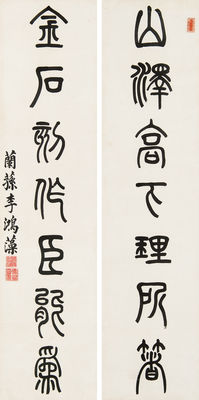 山澤高下理所箸
金石刻作臣能為
蘭蓀李鴻藻